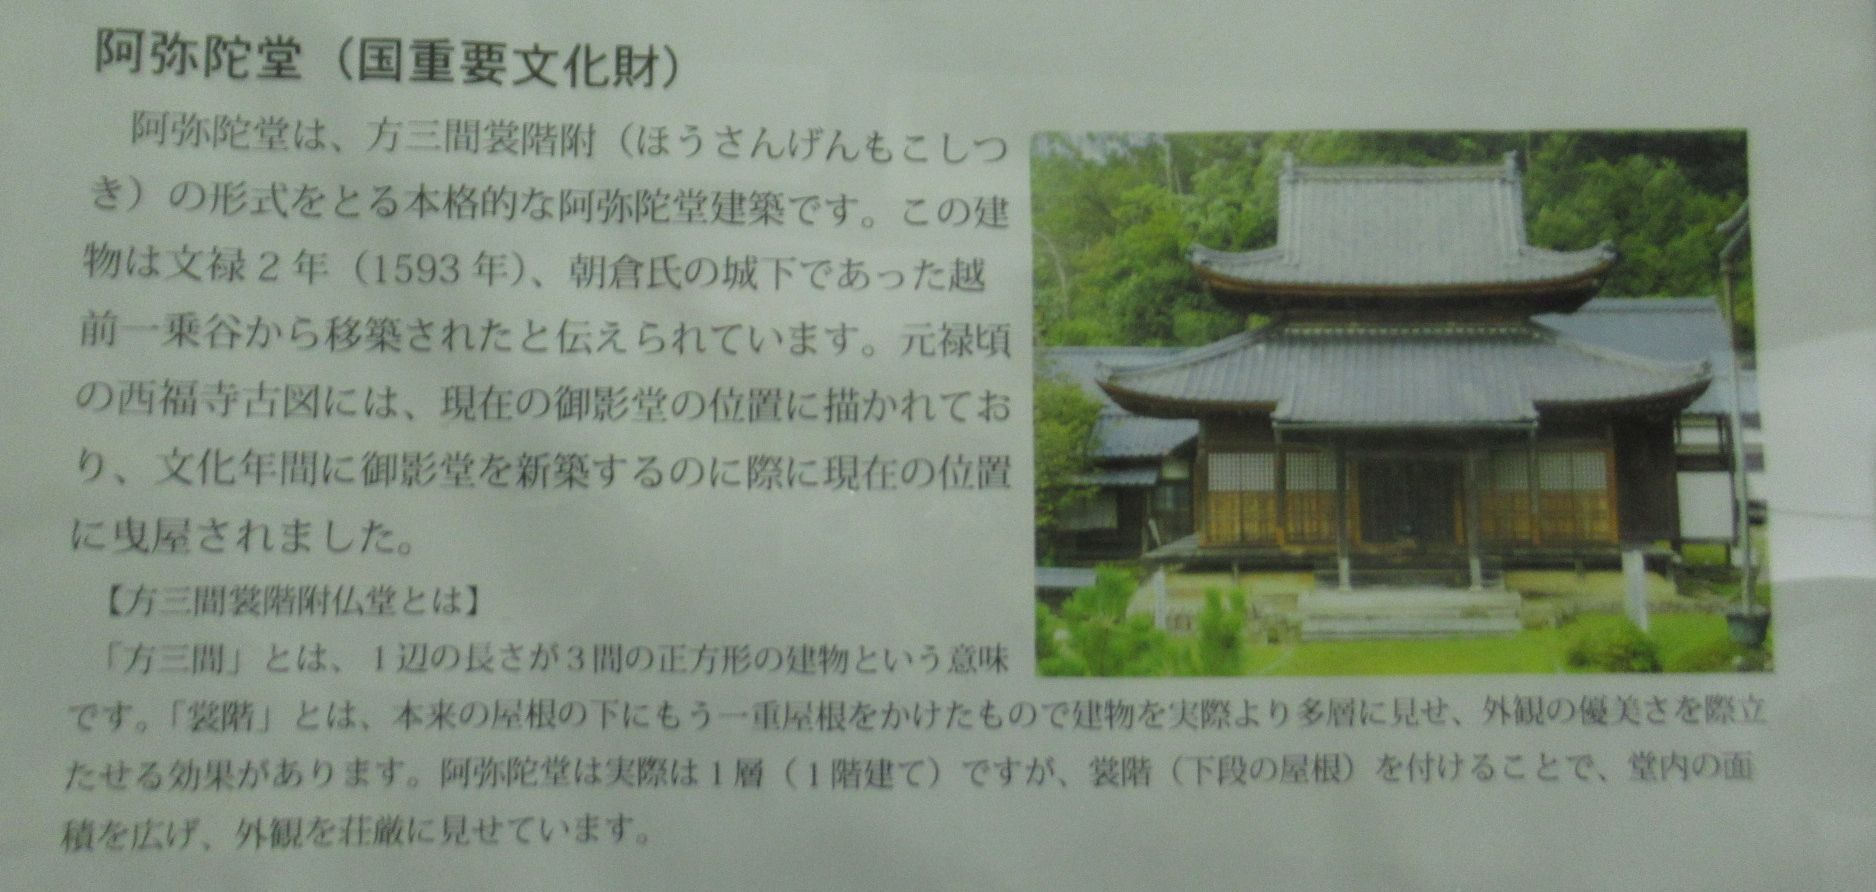 阿弥陀堂（国重要文化財）
阿弥陀堂は、方三間裳階附（ほうさんげんもこしつ
き）の形式をとる本格的な阿弥陀堂建築です。この建
物は文禄２年（1593年）、朝倉氏の城下であった越
前一乗谷から移築されたと伝えられています。元禄頃
の西福寺古図には、現在の御影堂の位置に描かれてお
り、文化年間に御影堂を新築するのに際に現在の位置
に曳屋されました。
【方三間裳階附仏堂とは】
「方三間」とは、１辺の長さが３間の正方形の建物という意味
です。「裳階」とは、本来の屋根の下にもう一重屋根をかけたもので建物を実際より多層に見せ、外観の優美さを際立
たせる効果があります。阿弥陀堂は実際は１層（１階建て）ですが、裳階（下段の屋根）を付けることで、堂内の面
積を広げ、外観を荘厳に見せています。